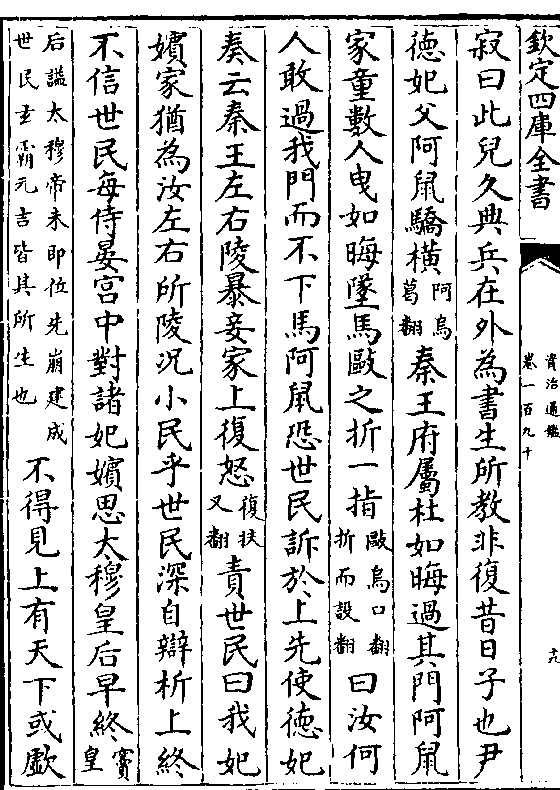 欽定四庫全書
資治通鑑
卷一百九十
十九
寂曰此兒久典兵在外為書生所教非復昔日子也尹
德妃父阿鼠驕橫阿烏葛翻秦王府屬杜如晦過其門阿鼠
家童數人曳如晦墜馬毆之折一指毆烏口翻折而設翻曰汝何
人敢過我門而不下馬阿鼠恐世民訴於上先使德妃
奏云秦王左右陵暴妾家上復怒復扶又翻責世民曰我妃
嬪家猶為汝左右所陵況小民乎世民深自辯析上終
不信世民每侍宴宮中對諸妃嬪思太穆皇后早終竇皇
后諡太穆帝未即位先崩建成世民玄霸元吉皆其所生也不得見上有天下或歔